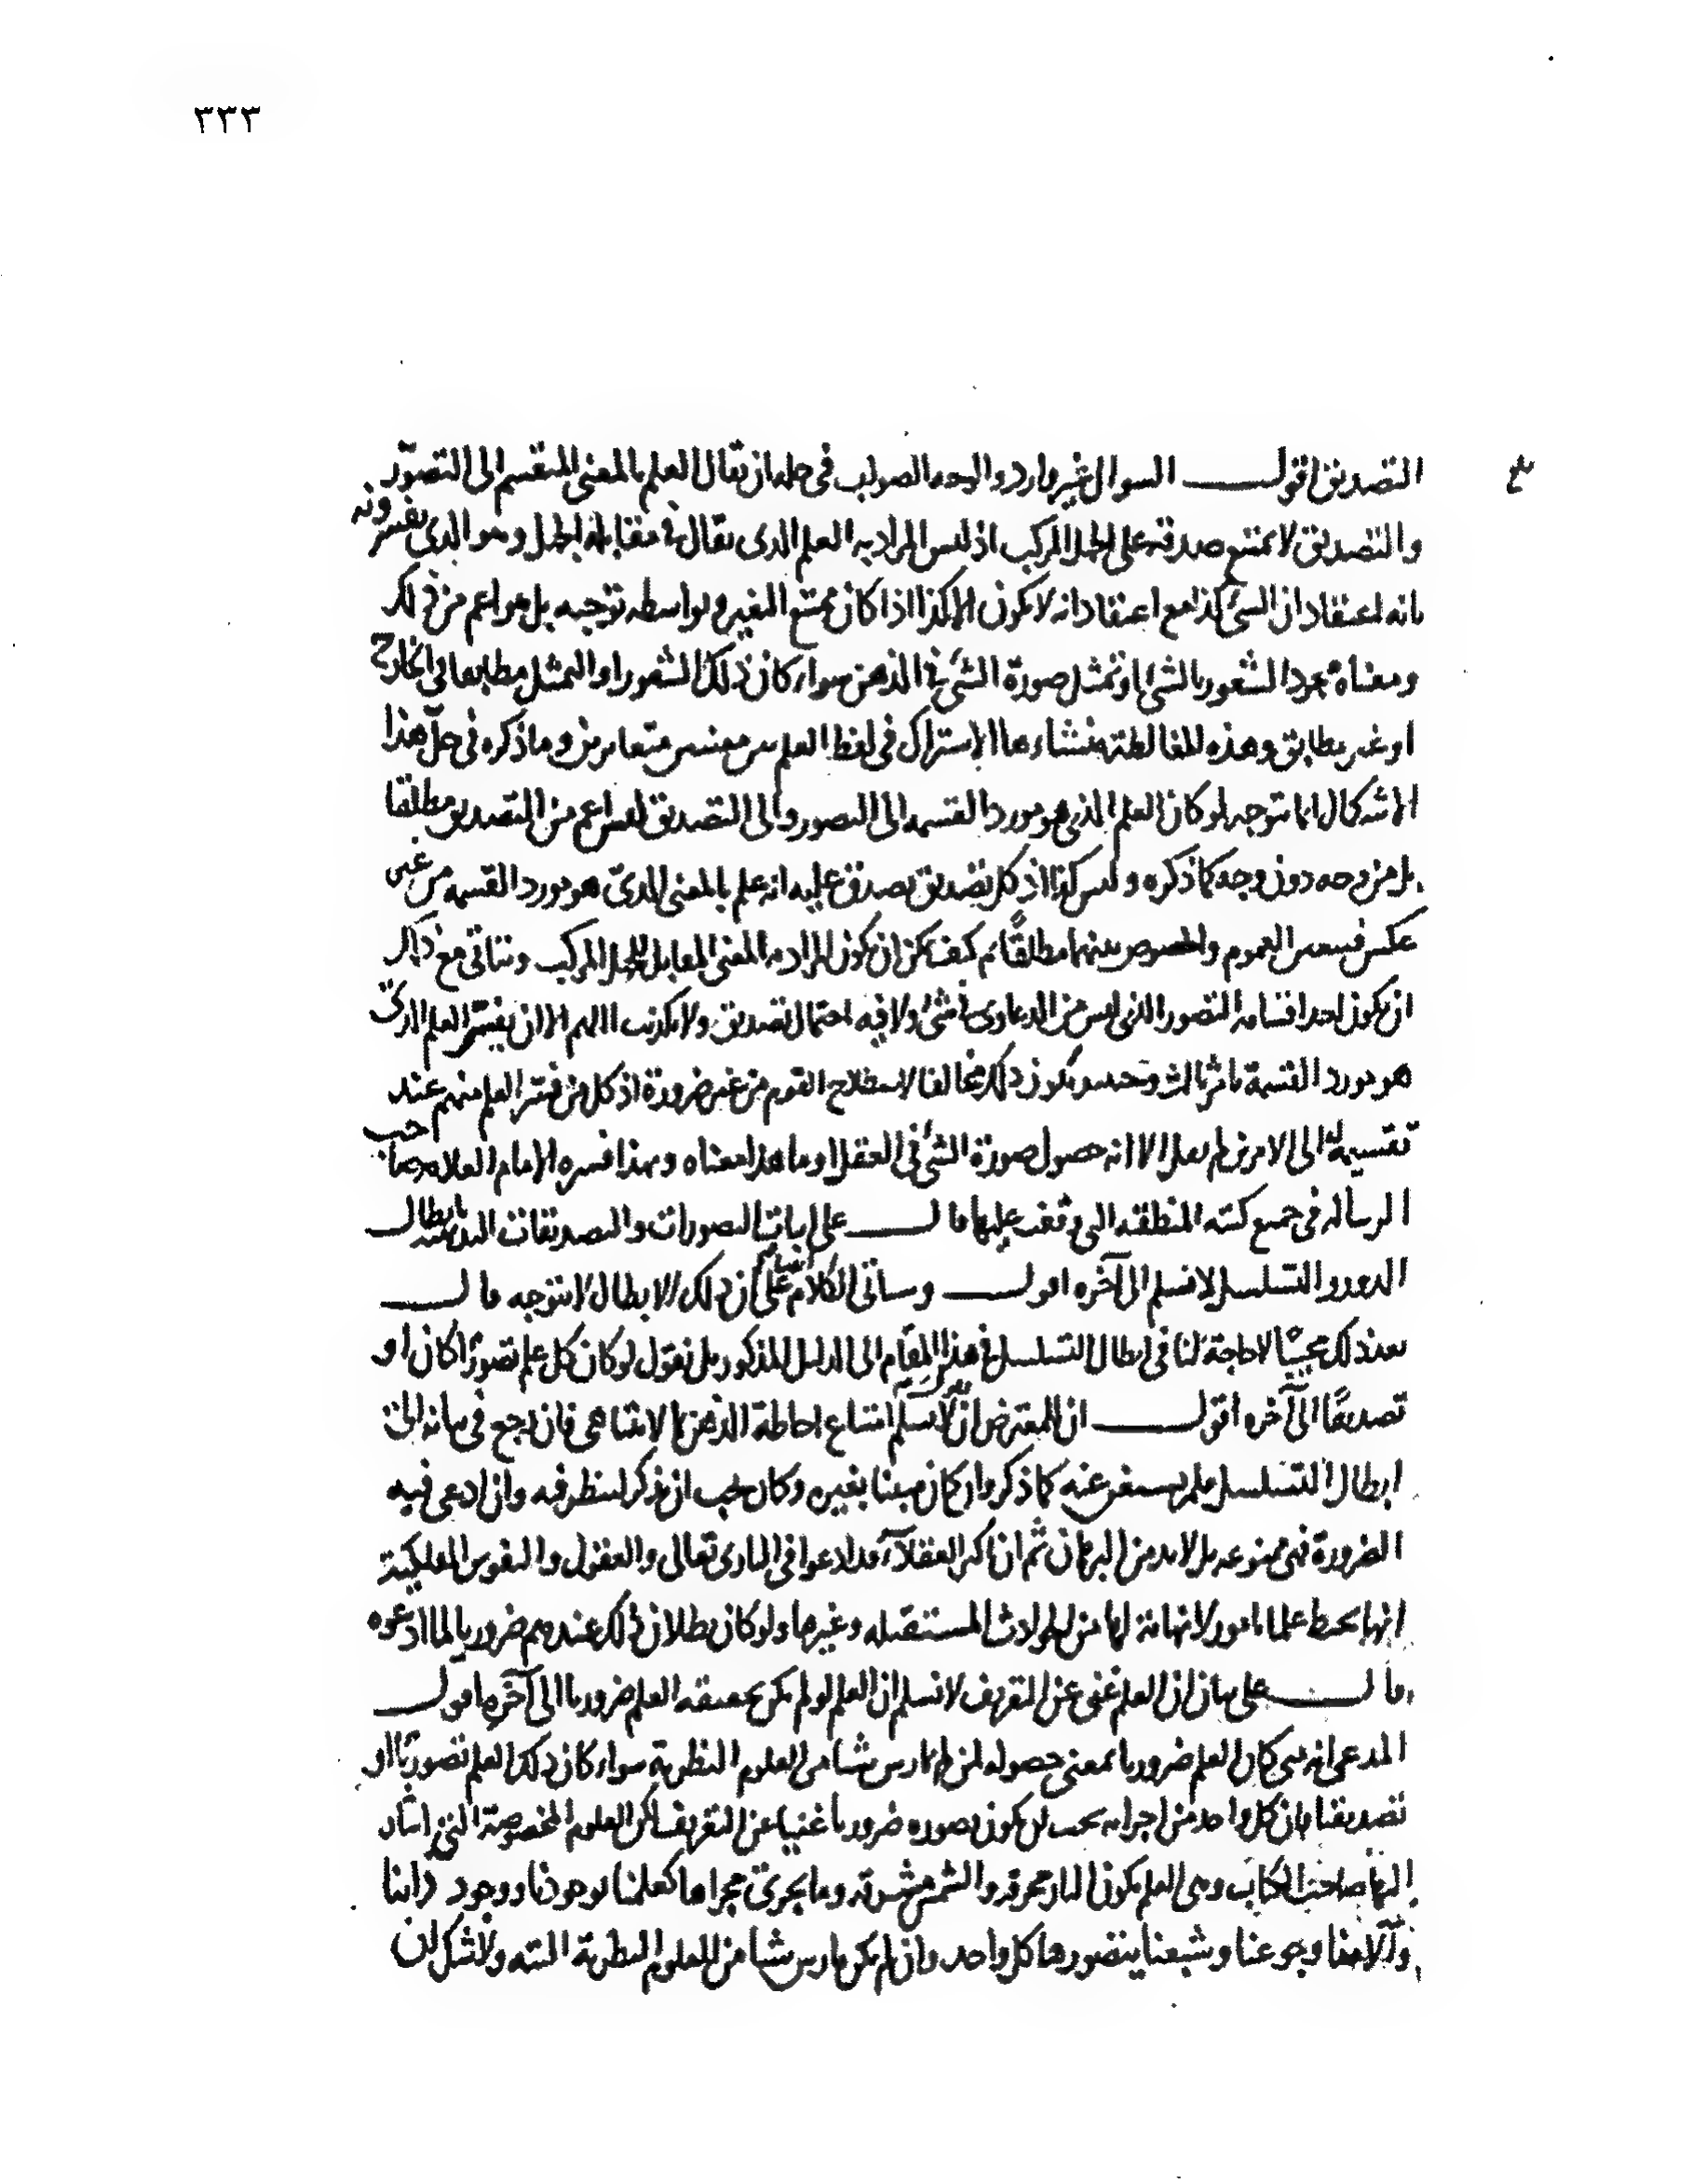 ٣٣٣
بلغ
التصديق اقول السوال غير وارد والوجه الصواب في حله ان يقال العلم بالمعنى المنقسم الى التصور
والتصديق لا يمتنع صدقه على الجهل المركب اذ ليس المراد به العلم الذى يقال في مقابلة الجهل وهو الذي يفسرونه
بانه اعتقاد ان الشئ كذا مع اعتقاد انه لا يكون الا كذا اذا كان ممتنع التغير وبواسطه توجبه بل هو اعم من ذلك
ومعناه مجرد الشعور بالشئ او تمثل صورة الشئ في الذهن سواء كان ذلك الشعور او التمثل مطابقا في الخارج
او غير مطابق وهذه المغالطة منشاءها الاشتراك في لفظ العلم بين معنيين متغايرين وما ذكره في حل هذا
الاشكال انما يتوجه لو كان العلم الذي هو مورد القسمه الى التصور والى التصديق ليس اعم من التصديق مطلقا
بل من وجه دون وجه كما ذكره وليس كذا اذ كل تصديق يصدق عليه انه علم بالمعنى الذى هو مورد القسمه من غير
عكس فتعين العموم والخصوص بينهما مطلقًا ثم كيف يمكن ان يكون المراد به المعنى المقابل للجهل المركب ويتاتى مع ذلك
ان يكون احد اقسامه التصور الذي ليس من الدعاوى في شئ ولا فيه احتمال تصديق ولا تكذيب اللهم الا ان يفسر العلم الذى
هو مورد القسمة بامر ثالث وحينئذ يكون ذلك مخالفا لاصطلاح القوم من غير ضرورة اذ كل من فسر العلم منهم عند
تقسيمه الى الامرين لم يقل الا انه حصول صورة الشئ في العقل او ما هذا معناه وبهذا فسره الامام العلامه صاحب
الرساله في جميع كتبه المنطقيه التي وقفت عليها قال على اثبات التصورات والتصديقات البديهيه بابطال
الدور والتسلسل لا نسلم الى آخره اقول وسياتى الكلام على ان ذلك الابطال لا يتوجه قال
بعد ذلك مجيبًا لا حاجة لنا في ابطال التسلسل في هذا المقام الى الدليل المذكور بل نقول لو كان كل علم تصورًا كان او
تصديقًا الى آخره اقول ان للمعترض ان لا يسلم امتناع احاطة الذهن بما لا يتناهى فان رجع في بيانه الى
ابطال التسلسل فلم يستغن عنه كما ذكر وان كان مبينا بغيره وكان يجب ان يذكر لينظر فيه وان ادعى فيه
الضرورة فهى ممنوعه بل لا بد من البرهان ثم ان اكثر العقلاء قد ادعوا في البارى تعالى والعقول والنفوس الفلكية
انها تحيط علما بامور لا نهاية لها من الحوادث المستقبله وغيرها ولو كان بطلان ذلك عندهم ضروريا لما ادعوه
قال على بيان ان العلم غنى عن التعريف لا نسلم ان العلم لو لم يكن بحقيقه العلم ضروريا الى آخره اقول
المدعى انه متى كان العلم ضروريا بمعنى حصوله لمن لم يمارس شيئا من العلوم النظرية سواء كان ذلك العلم تصوريًا او
تصديقيا فان كل واحد من اجزايه يجب ان يكون تصوره ضروريا غنيا عن التعريف لكن العلوم المخصوصة التي اشار
اليها صاحب الكتاب وهى العلم بكون النار محرقه والشمس مشرقه وما يجرى مجراها كعلمنا بوجودنا ووجود ذاتنا
وآلامنا وجوعنا وشبعنا يتصورها كل واحد وان لم يكن مارس شيئا من العلوم النظرية البته ولا شك ان